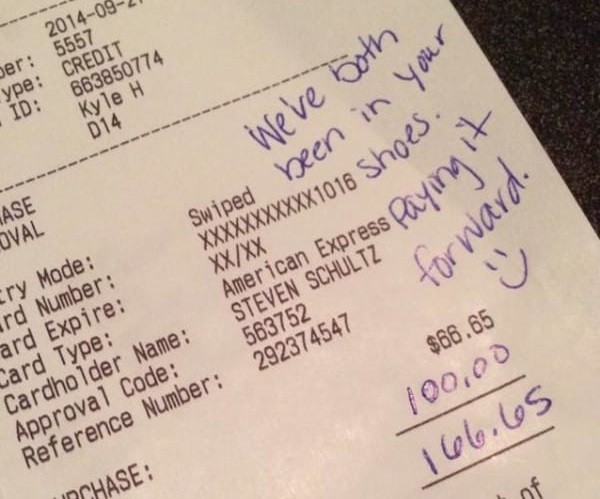 2014-09-2
ber: 5557
ype: CREDIT
ID: 663850774
Kyle H
D14
We've both
been in your
shoes.
Paying it
forward.
:)
HASE
OVAL
try Mode: Swiped
ard Number: XXXXXXXXXXX1016
ard Expire: XX/XX
Card Type: American Express
Cardholder Name: STEVEN SCHULTZ
Approval Code: 563752
Reference Number: 292374547
RCHASE: $66.65
100.00
166.65
of